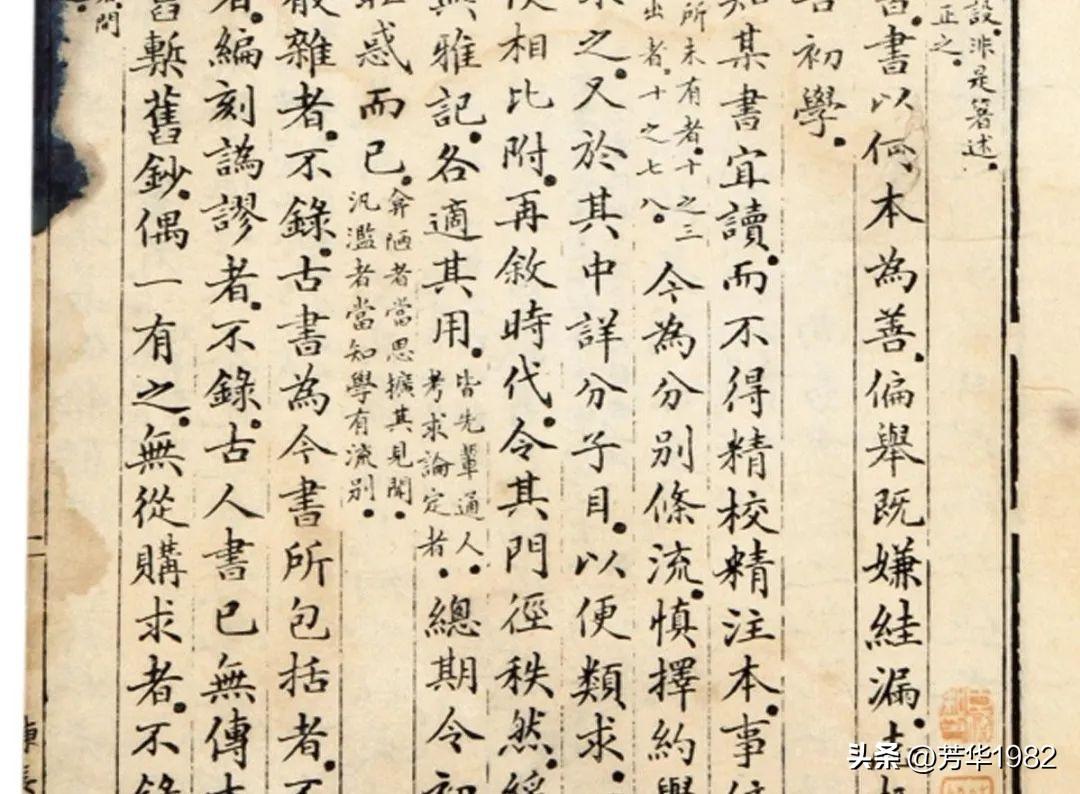 設非是箸述
正之
書以何本為善偏舉既嫌絓漏
初學
知某書宜讀而不得精校精注本事
所未有者十之三
出者十之七八
今為分別條流慎擇約舉
之又於其中詳分子目以便類求
相比附再敘時代令其門徑秩然
雅記各適其用
皆先輩通人
考求論定者
總期令初
惑而已
弇陋者當思擴其見聞
汎濫者當知學有流別
雜者不錄古書為今書所包括者不
編刻譌謬者不錄古人書已無傳
暫舊鈔偶一有之無從購求者不錄
頭条@芳华1982